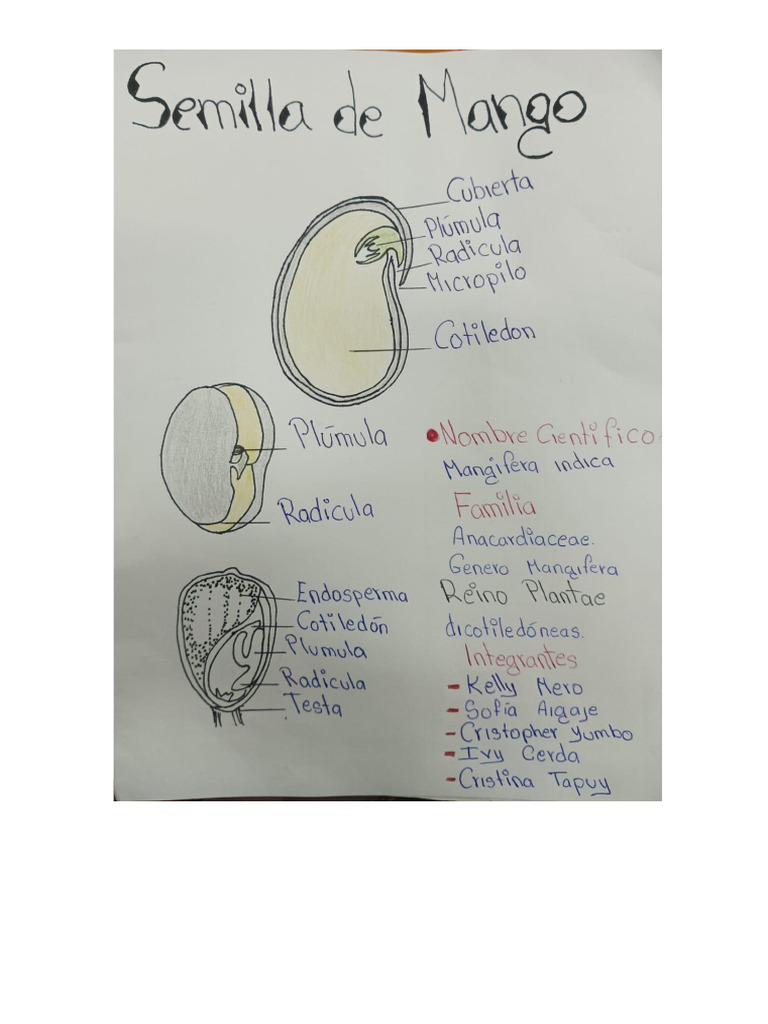 Semilla de Mango
Cubierta
Plúmula
Radicula
Micropilo
Cotiledon
Plúmula
Radícula
Endosperma
Cotiledón
Plumula
Radícula
Testa
Nombre Cientifico
Mangifera indica
Familia
Anacardiaceae.
Genero Mangifera
Reino Plantae
dicotiledóneas.
Integrantes
- Kelly Mero
- Sofía Aigaje
- Cristopher Yumbo
- Ivy Cerda
- Cristina Tapuy